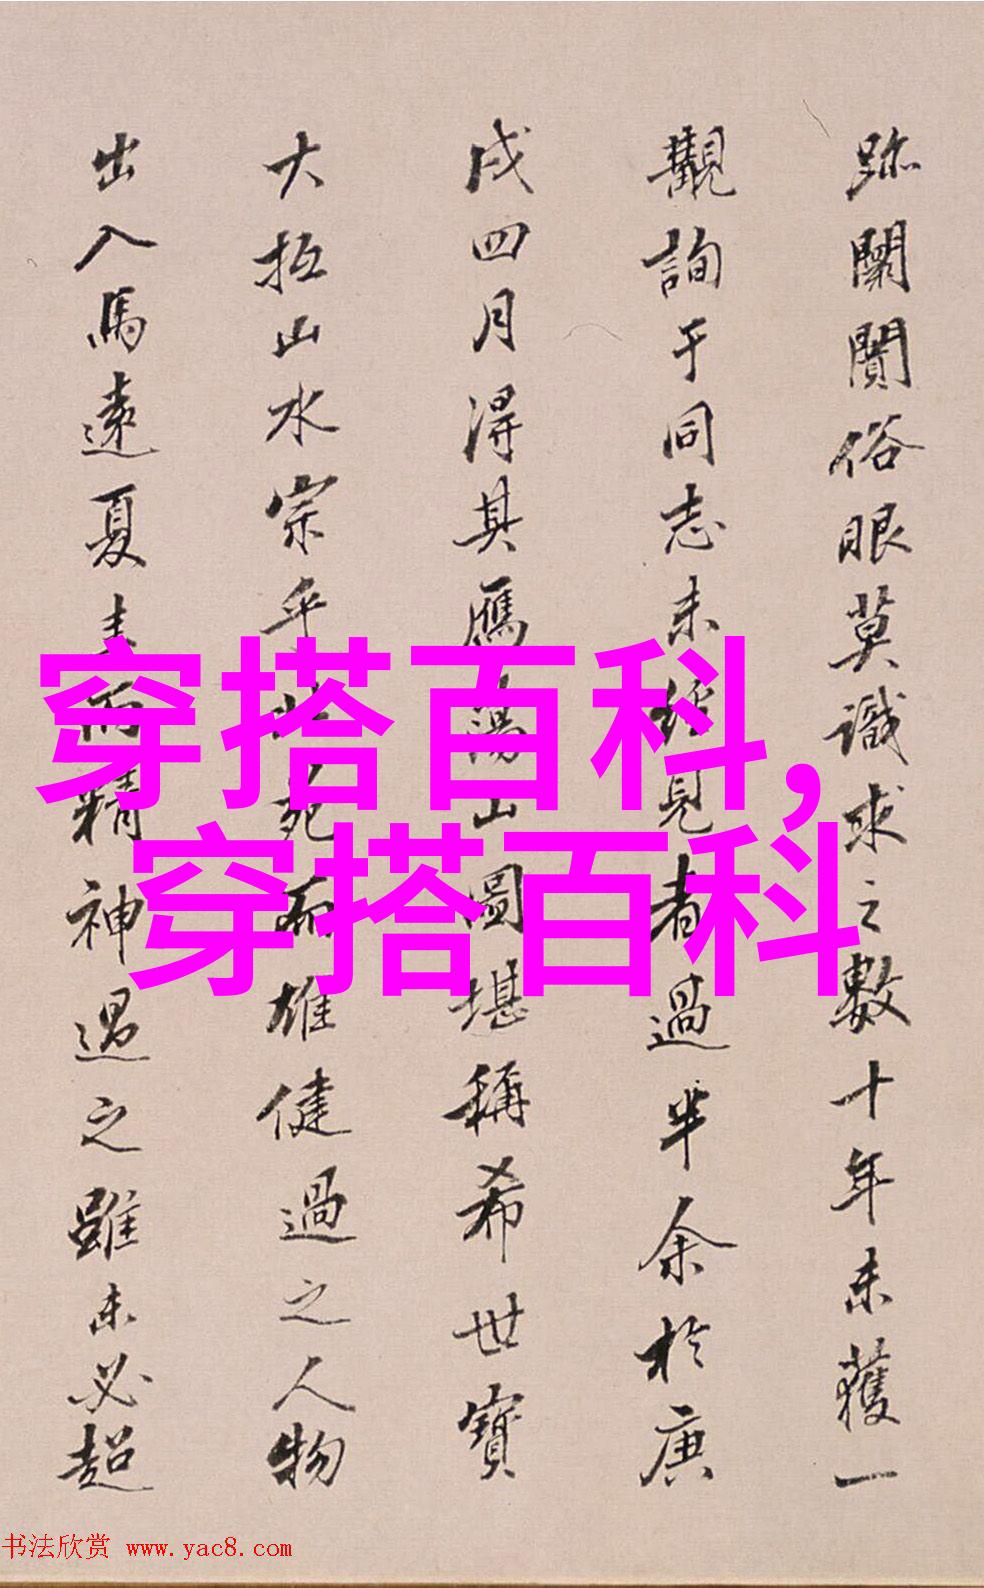 跡闤闠俗眼莫識求之數十年未獲一
觀詢于同志未經見者過半余於庚
戌四月得其鴈蕩山圖堪稱希世寶
大抵山水宗乎北苑而雄健過之人物
出入馬遠夏圭而精神過之雖未必超
穿搭百科,
穿搭百科
书法欣赏 www.yac8.com